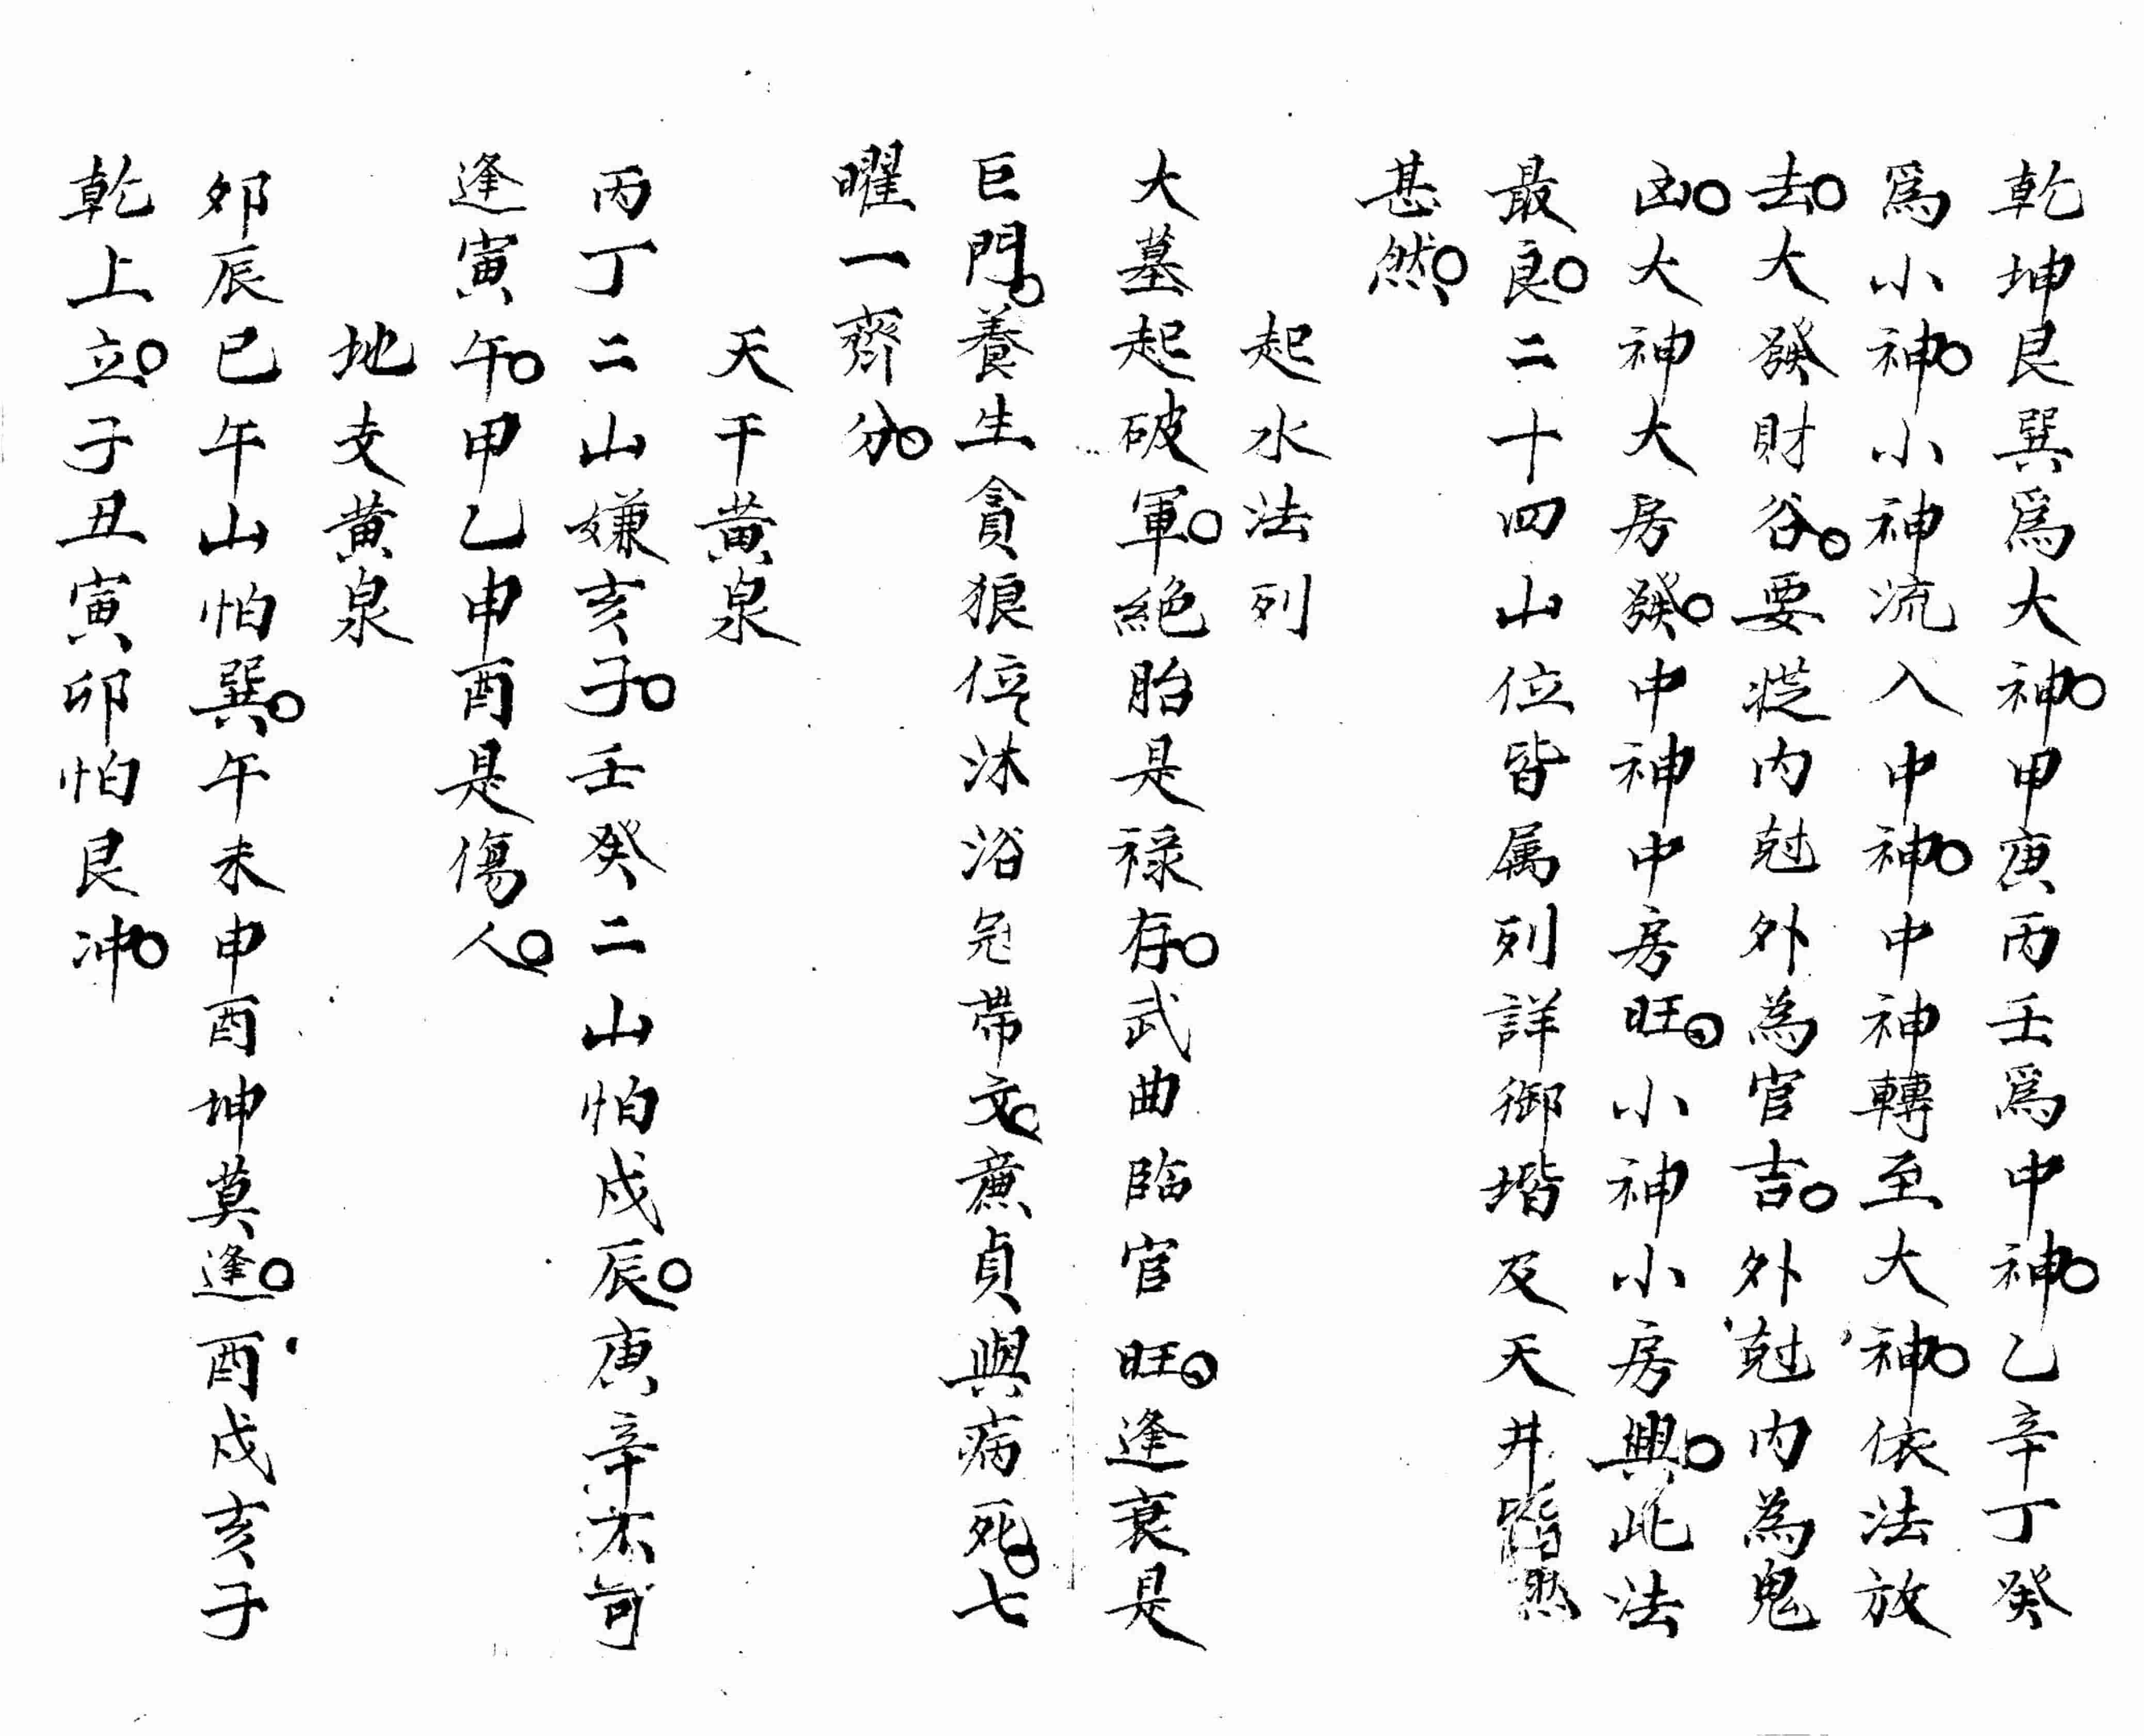 乾坤艮巽爲大神○甲庚丙壬爲中神○乙辛丁癸
爲小神○小神流入中神○中神轉至大神○依法放
去○大發財谷○要從内尅外為官吉○外尅内為鬼
凶○大神大房發○中神中房旺○小神小房興○此法
最良○二十四山位皆属列詳御堦及天井皆然
甚然○
起水法列
大墓起破軍○絕胎是禄存○武曲臨官旺○逢衰是
巨門○養生貪狼位沐浴冠帶文○廉貞與病死○七
曜一齊分○
天干黄泉
丙丁二山嫌亥子○壬癸二山怕戍辰○庚辛不可
逢寅午○甲乙申酉是傷人○
地支黄泉
卯辰巳午山怕巽○午未申酉坤莫逢○酉戍亥子
乾上立○子丑寅卯怕艮冲○